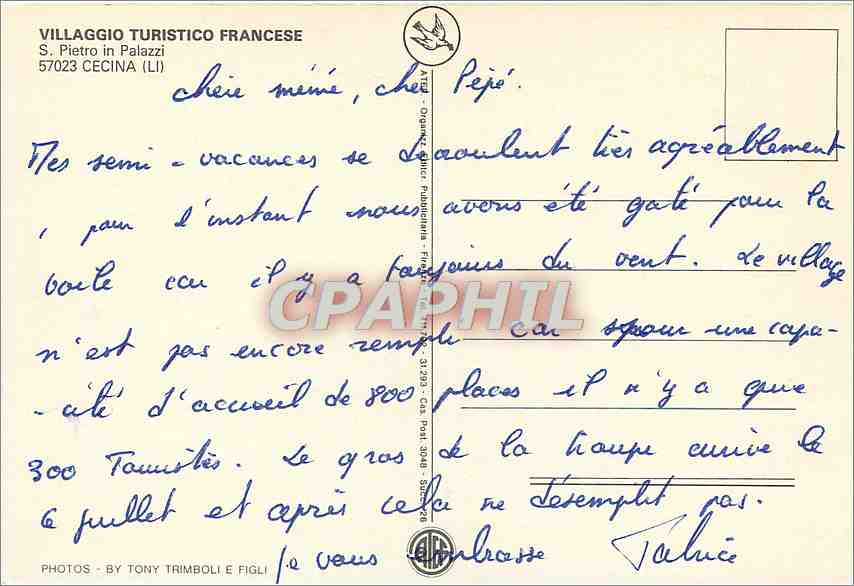 VILLAGGIO TURISTICO FRANCESE
S. Pietro in Palazzi
57023 CECINA (LI)
Chère mémé, cher Pépé.
Mes semi-vacances se déroulent très agréablement
, pour l'instant nous avons été gaté pour la
voile car il y a toujours du vent. Le village
n'est pas encore rempli car pour une capa-
-cité d'accueil de 800 places il n'y a que
300 Touristes. Le gros de la troupe arrive le
6 juillet et après cela ne désemplit pas.
Je vous embrasse Fabrice
PHOTOS - BY TONY TRIMBOLI E FIGLI
CPAPHIL